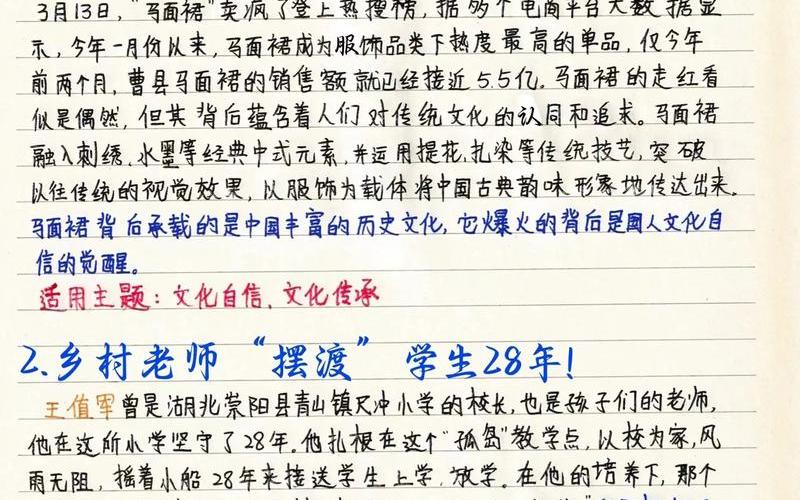 3月13日，"马面裙"卖疯了登上热搜榜，据多个电商平台大数据显
示，今年一月份以来，马面裙成为服饰品类下热度最高的单品，仅今年
前两个月，曹县马面裙的销售额就已经接近5.5亿。马面裙的走红看
似是偶然，但其背后蕴含着人们对传统文化的认同和追求。马面裙
融入刺绣、水墨等经典中式元素，并运用提花、扎染等传统技艺，突破
以往传统的视觉效果，以服饰为载体将中国古典韵味形象地传达出来。
马面裙背后承载的是中国丰富的历史文化，它爆火的背后是国人文化自
信的觉醒。
适用主题：文化自信、文化传承
2.乡村老师"摆渡"学生28年！
王值军曾是湖北崇阳县青山镇尺冲小学的校长，也是孩子们的老师，
他在这所小学坚守了28年。他扎根在这个"孤岛"教学点，以校为家，风
雨无阻，摇着小船28年来接送学生上学、放学。在他的培养下，那个